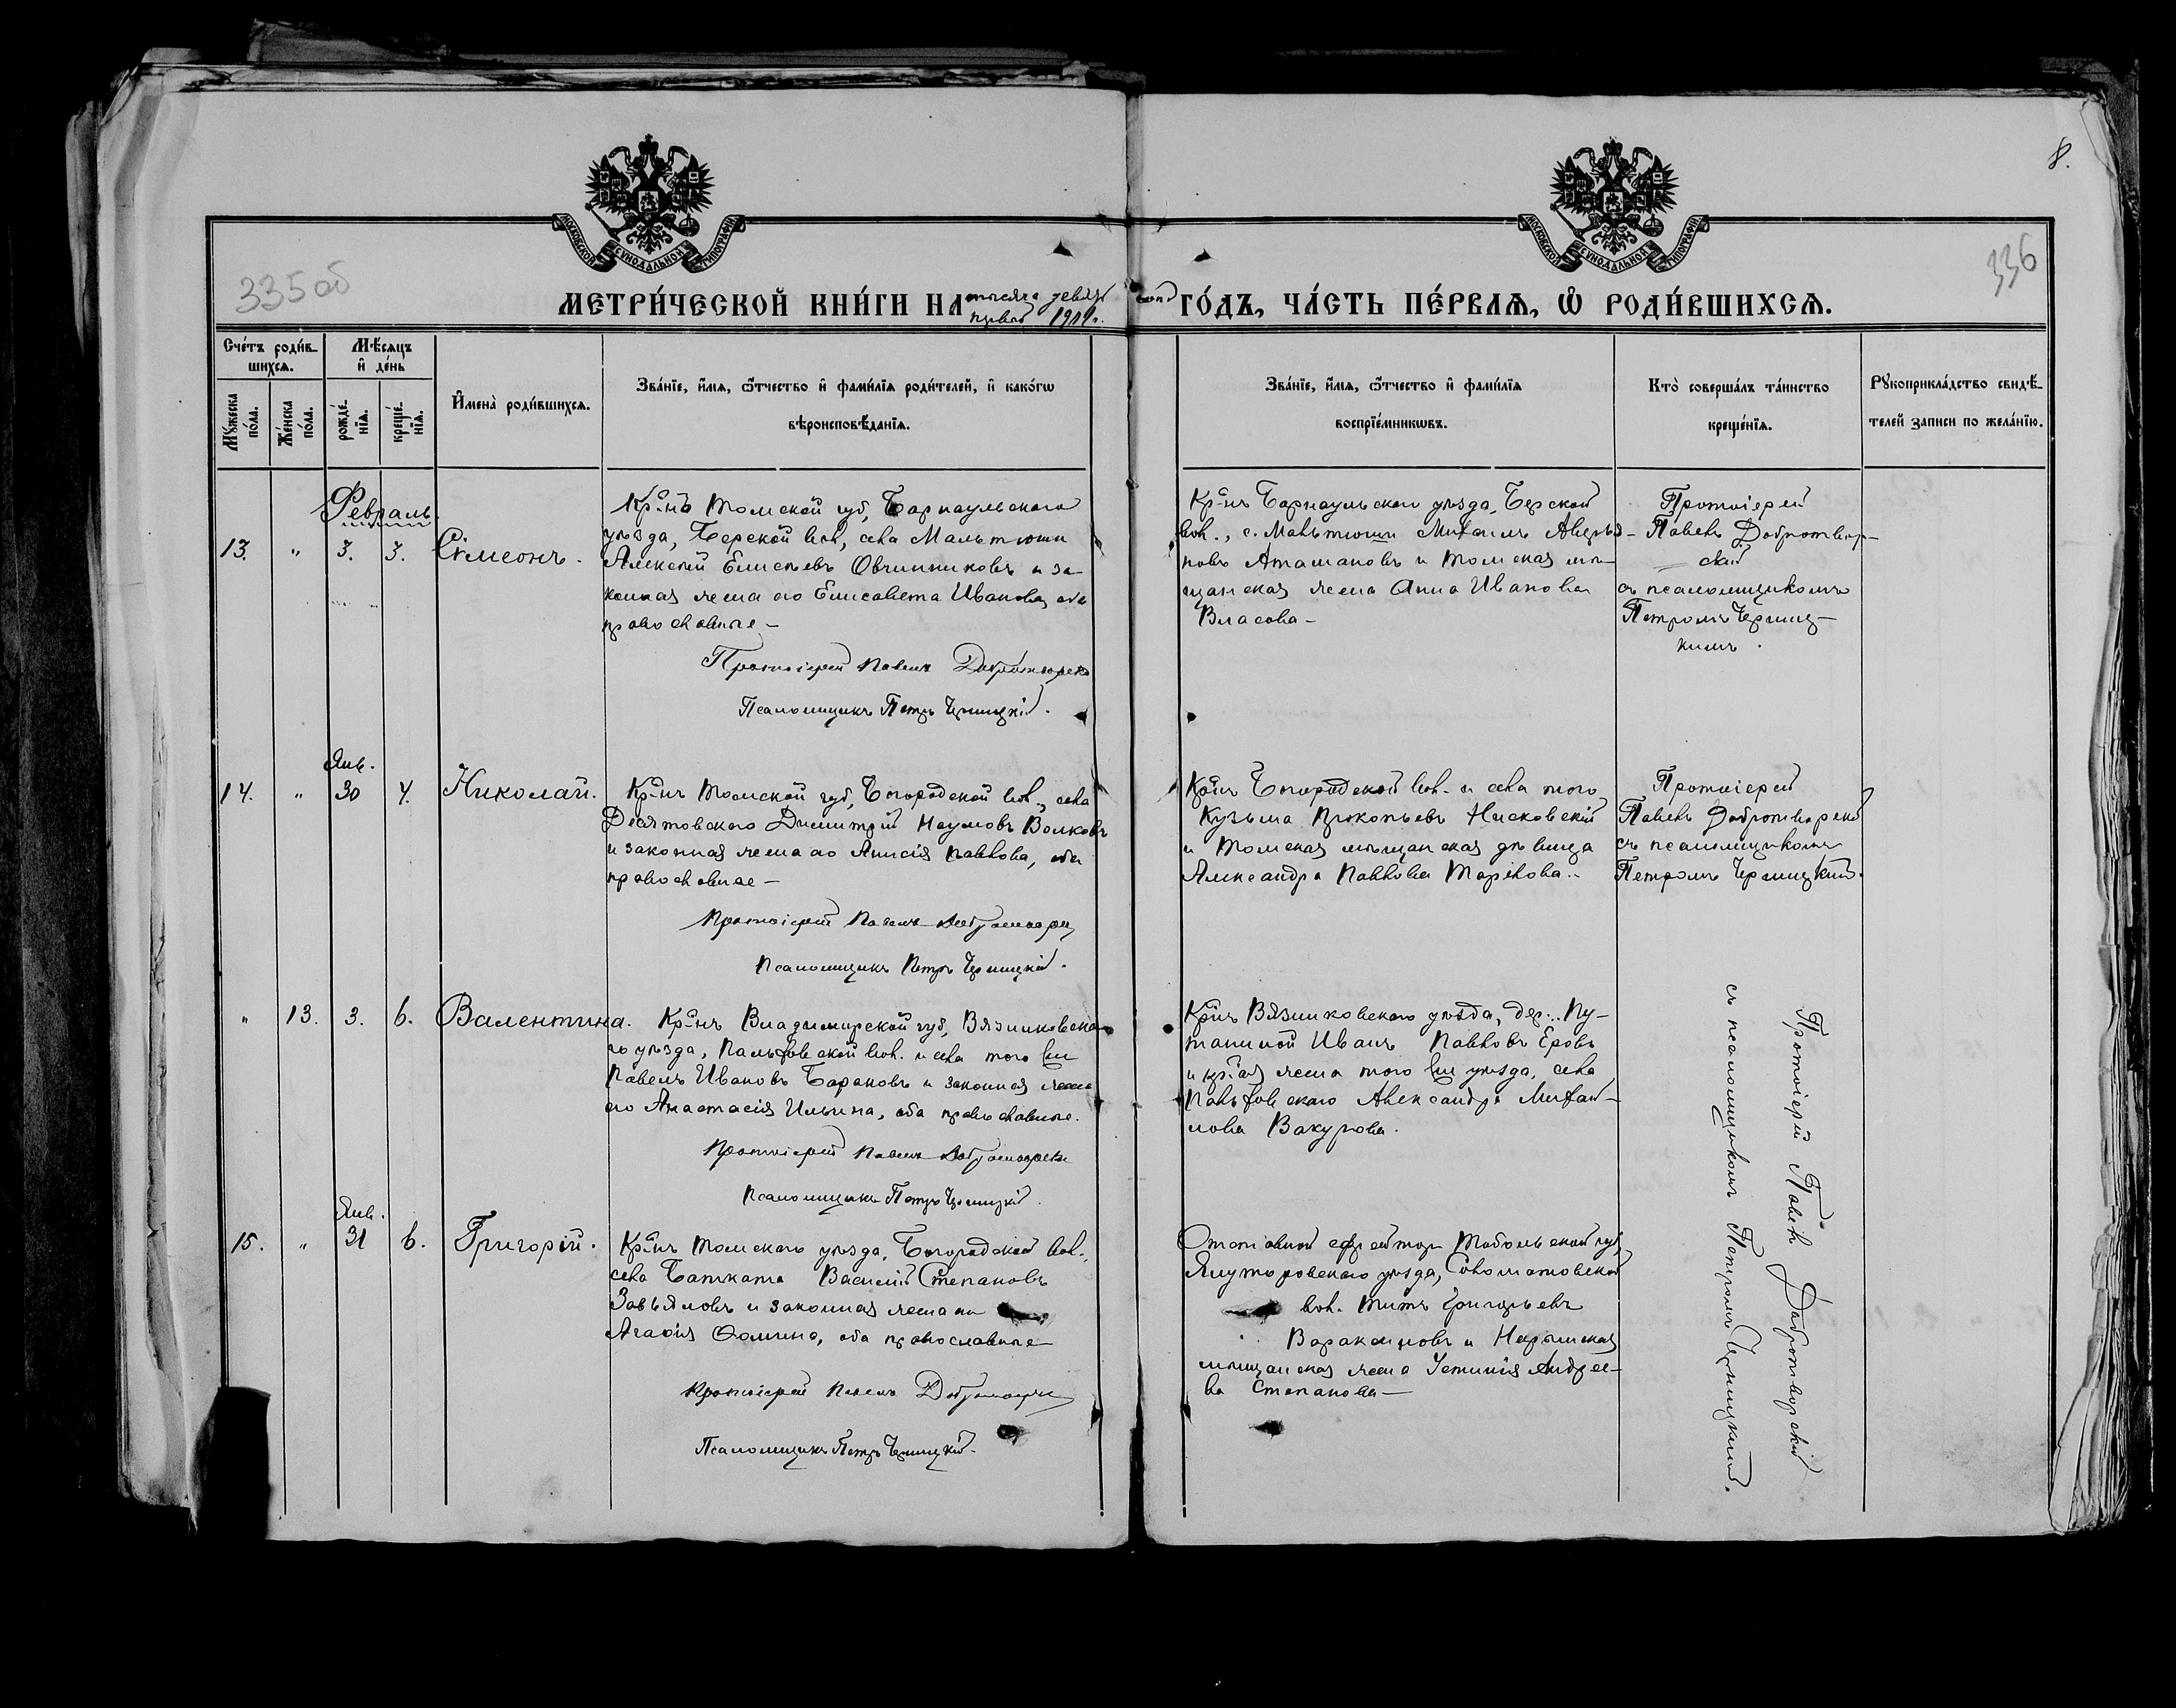 8.
335 об
336
МОСКОВСКОЙ СѴНОДАЛЬНОЙ ТИПОГРАФІИ
МОСКОВСКОЙ СѴНОДАЛЬНОЙ ТИПОГРАФІИ
МЕТРИ́ЧЕСКОЙ КНИ́ГИ НА тысяча девять сот
первый 1901 г.
ГО́ДЪ, ЧА́СТЬ ПЕ́РВАѦ, Ѡ҆ РОДИ́ВШИХСѦ.
Сче́тъ роди́в-
шихсѧ.
Мѣ́сѧцъ
и҆ де́нь
Мꙋ́жеска
по́ла.
Же́нска
по́ла.
рожде́-
нїѧ.
креще́-
нїѧ.
И҆мена̀ роди́вшихсѧ.
Зва́нїе, и҆́мѧ, ѻ҆́тчество и҆ фами́лїѧ роди́телей, и҆ како́гѡ
вѣроисповѣ́данїѧ.
Зва́нїе, и҆́мѧ, ѻ҆́тчество и҆ фами́лїѧ
воспрїе́мникѡвъ.
Кто̀ соверша́лъ та́инство
креще́нїѧ.
Рꙋкоприкла́дство свидѣ́-
телей записи по жела́нїю.
Февраль.
13. " 3. 3. Сѵмеонъ.
Кр-нъ Томской губ, Барнаульскаго
уѣзда, Берской вол, села Мальтюши
Алексѣй Елисѣевъ Овчинниковъ и за-
конная жена его Елисавета Иванова, оба
православные –
Протоіерей Павелъ Добротворск
Псаломщикъ Петръ Черницкій.
Кр-нъ Барнаульскаго уѣзда, Берской
вол., с. Мальтюши Михаилъ
Аташановъ и Томская мѣ-
щанская жена Анна Иванова
Власова –
Протоіерей
Павелъ Добротвор-
скій
съ псаломщикомъ
Петромъ Черниц-
кимъ.
Янв.
14. " 30 4. Николай.
Кр-нъ Томской губ, Богородской вол., села
Десятовскаго Димитрій Наумовъ Волковъ
и законная жена его Анисія Павлова, оба
православные –
Протоіерей Павелъ Добротворск
Псаломщикъ Петръ Черницкій.
Кр-нъ Богородской вол. и села того
Кузьма Прокопьевъ Нисковскій
и Томская мѣщанская дѣвица
Александра Павлова
Протоіерей
Павелъ Добротворскій
съ псаломщикомъ
Петромъ Черницкий.
" 13. 3. 6. Валентина.
Кр-нъ Владимирской губ, Вязниковска-
го уѣзда, Палеховской вол. и села того же
Павелъ Ивановъ Барановъ и законная жена
его Анастасія Ильина, оба православные.
Протоіерей Павелъ Добротворск
Псаломщикъ Петръ Черницкій.
Кр-нъ Вязниковскаго уѣзда, дер. Пу-
таниной Иванъ Павловъ Еровъ
и кр-ая жена того же уѣзда, села
Палеховскаго Александра Михай-
лова Вакурова.
Протоіерей Павелъ Добротворскій
съ псаломщикомъ Петромъ Черницкий.
Янв.
15. " 31 6. Григорій.
Кр-нъ Томскаго уѣзда, Богородской вол.
села Батката Василій Степановъ
Завьяловъ и законная жена его
Агафія Фомина, оба православные
Протоіерей Павелъ Добротворск
Псаломщикъ Петръ Черницкій.
ефрейтор Тобольской губ,
Ялуторовскаго уѣзда,
вол. Титъ Григорьевъ
Вараксиновъ и Нарымская
мѣщанская жена Устинія Андрее-
ва Степанова –